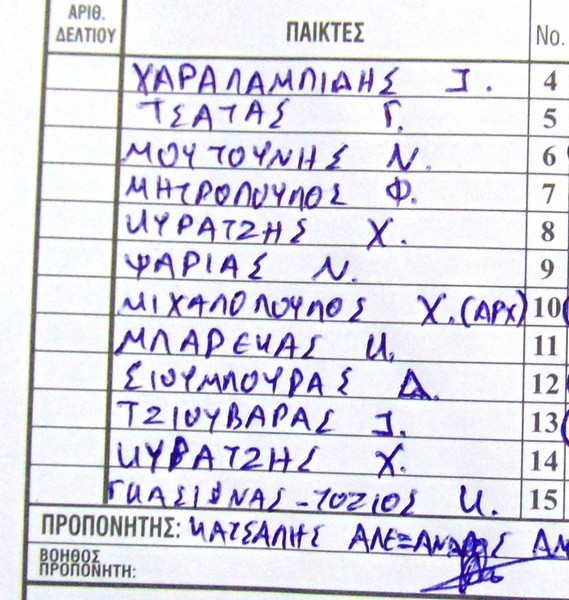 ΑΡΙΘ. ΔΕΛΤΙΟΥ ΠΑΙΚΤΕΣ No.
ΧΑΡΑΛΑΜΠΙΔΗΣ Ι. 4
ΤΣΑΤΑΣ Γ. 5
ΜΟΥΤΟΥΝΗΣ Ν. 6
ΜΗΤΡΟΠΟΥΛΟΣ Φ. 7
ΚΥΡΑΤΖΗΣ Χ. 8
ΨΑΡΙΑΣ Ν. 9
ΜΙΧΑΛΟΠΟΥΛΟΣ Χ. (ΑΡΧ) 10
ΜΠΑΡΕΚΑΣ Κ. 11
ΣΙΟΥΜΠΟΥΡΑΣ Δ. 12
ΤΖΙΟΥΒΑΡΑΣ Ι. 13
ΚΥΡΑΤΖΗΣ Χ. 14
ΓΚΑΣΙΩΝΑΣ-ΤΟΖΙΟΣ Κ. 15
ΠΡΟΠΟΝΗΤΗΣ: ΚΑΤΣΑΛΗΣ
ΒΟΗΘΟΣ
ΠΡΟΠΟΝΗΤΗ: